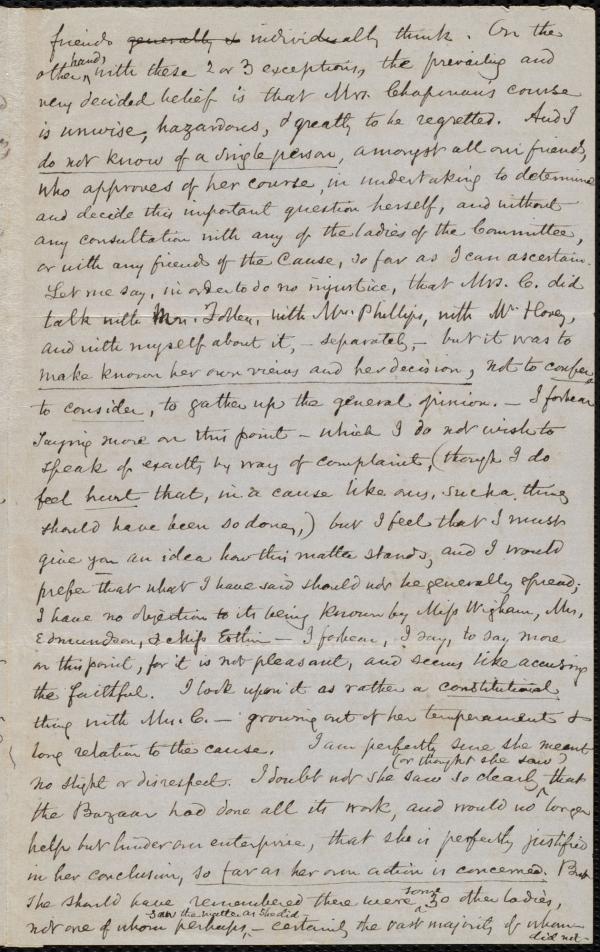 friends generally & individually think. On the
other hand, with these 2 or 3 exceptions, the prevailing and
very decided belief is that Mrs. Chapman's course
is unwise, hazardous, & greatly to be regretted. And I
do not know of a single person, amongst all our friends,
who approves of her course, in undertaking to determine
and decide this important question herself, and without
any consultation with any of the ladies of the Committee,
or with any friend of the Cause, so far as I can ascertain.
Let me say, in order to do no injustice, that Mrs. C. did
talk with Mrs. Follen, with Mr. Phillips, with Mr. Hovey,
and with myself about it, – separately, – but it was to
make known her own views and her decision, not to confer,
to consider, to gather up the general opinion. – I forbear
saying more on this point – which I do not wish to
speak of exactly by way of complaint, (though I do
feel hurt that, in a cause like ours, such a thing
should have been so done,) but I feel that I must
give you an idea how this matter stands, and I would
prefer that what I have said should not be generally spread;
I have no objection to its being known by Miss Wigham, Mrs.
Edmundson, & Miss Estlin – I forbear, I say, to say more
on this point, for it is not pleasant, and seems like accusing
the faithful. I look upon it as rather a constitutional
thing with Mrs. C. – growing out of her temperament &
long relation to the cause. I am perfectly sure she meant
no slight or disrespect. I doubt not she saw (or thought she saw) so clearly that
the Bazaar had done all its work, and would no longer
help but hinder our enterprise, that she is perfectly justified
in her conclusion, so far as her own action is concerned. But
she should have remembered there were some 30 other ladies,
not one of whom perhaps, saw the matter as she did – certainly the vast majority of whom
did not –